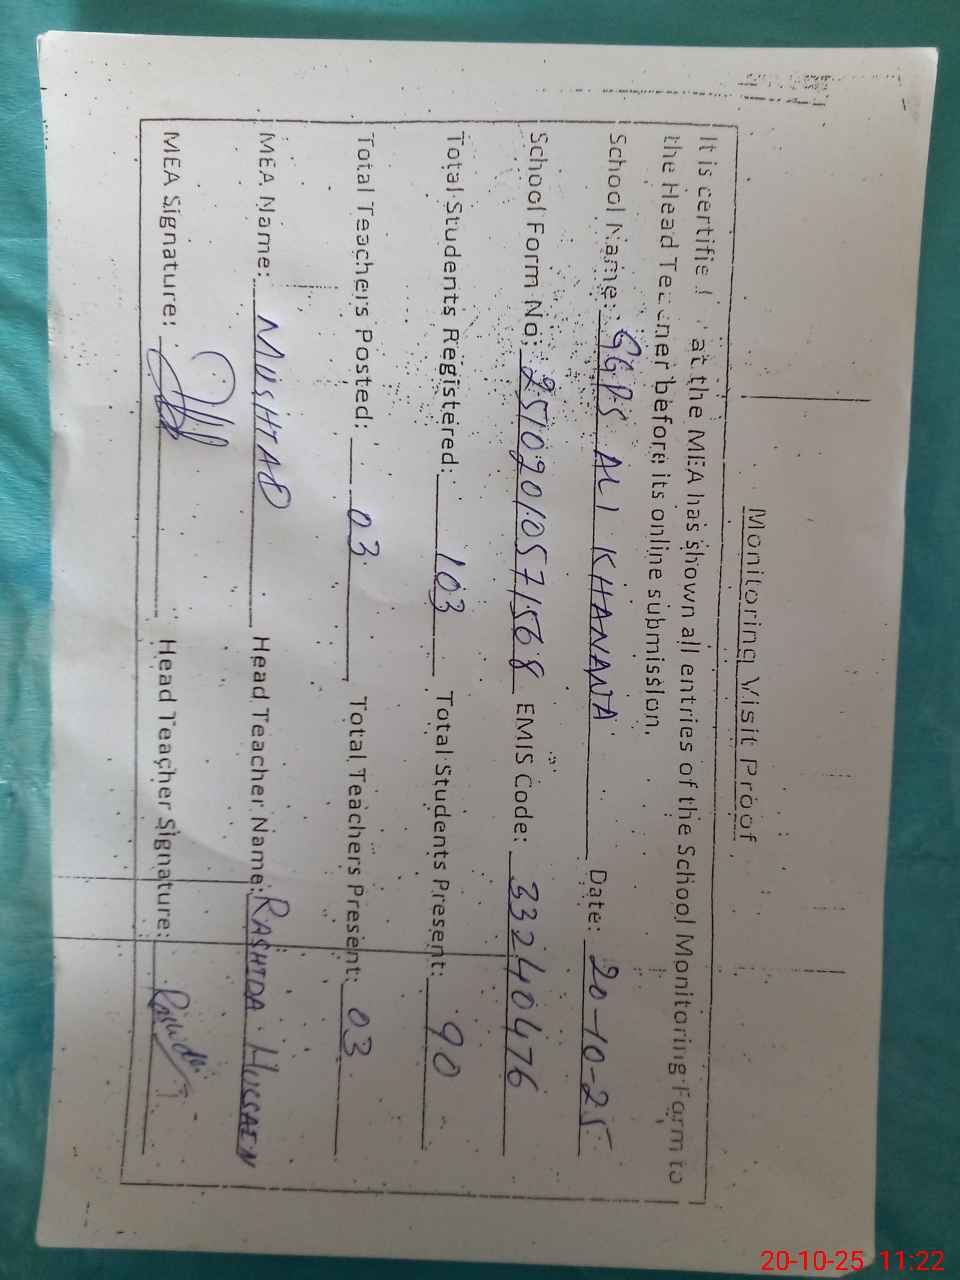 Monitoring Visit Proof
It is certified that the MEA has shown all entries of the School Monitoring Form to
the Head Teacher before its online submission.
School Name: GGPS ALI KHANANA Date: 20-10-25
School Form No: 25102010571568 EMIS Code: 33240476
Total Students Registered: 103 Total Students Present: 90
Total Teachers Posted: 03 Total Teachers Present: 03
MEA Name: MUSHTAQ Head Teacher Name: RASHIDA HUSSAIN
MEA Signature: Head Teacher Signature: Rashida
20-10-25 11:22